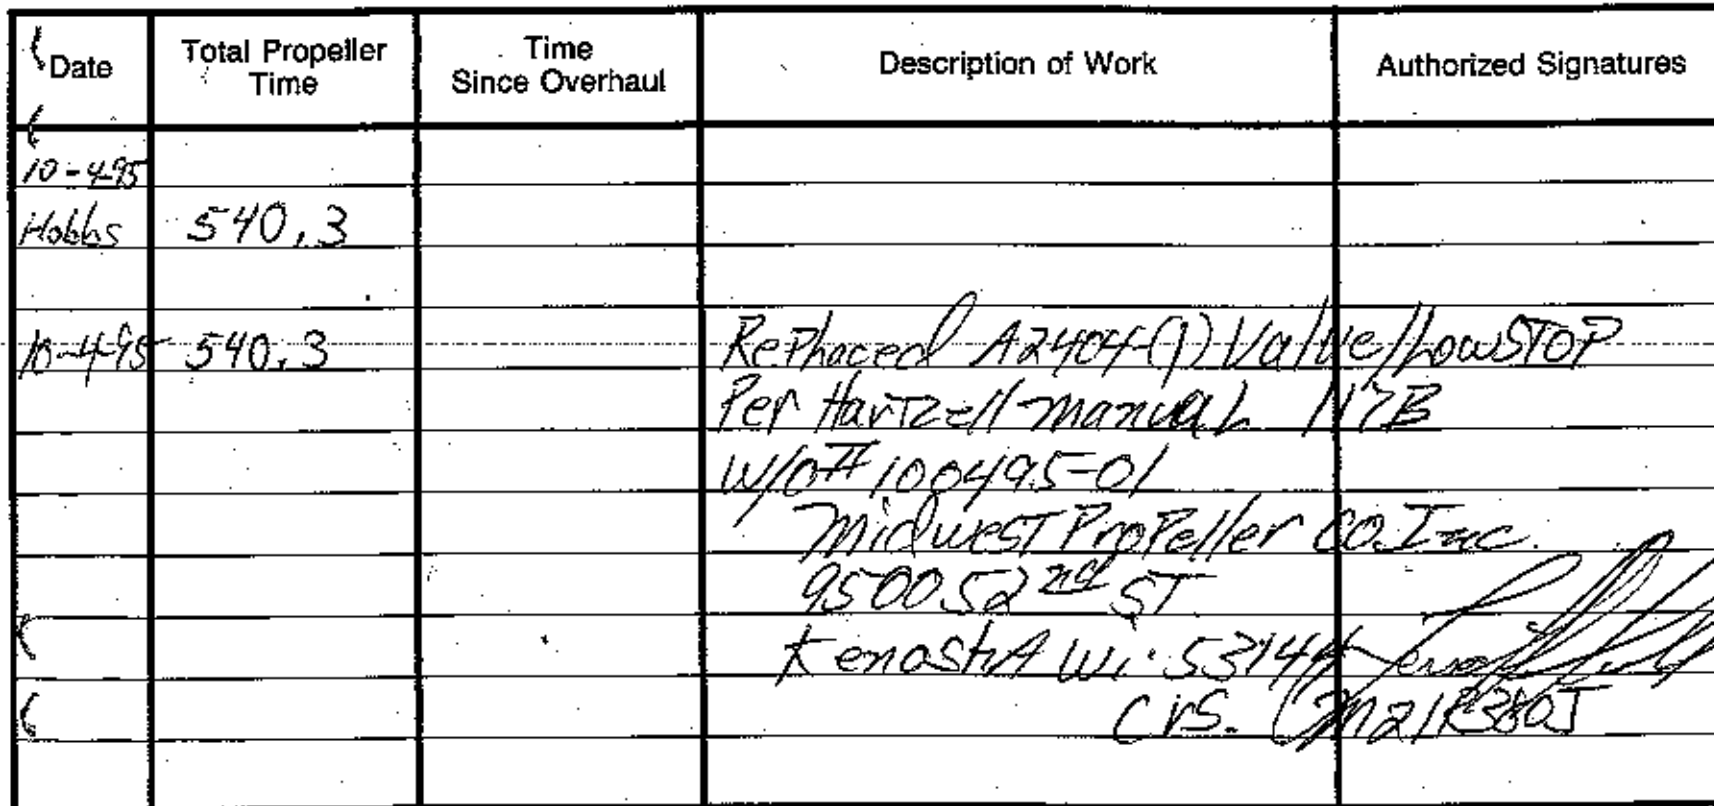 Date Total Propeller Time Time Since Overhaul Description of Work Authorized Signatures
10-4-95
Hobbs 540.3
10-4-95 540.3 Rephaced A2404-(1) Valve/Low STOP
Per Hartzell manual 117B
W/O# 100495-01
Midwest Propeller CO. Inc.
9500 52nd ST
KenoshA Wi. 53144
CrS.